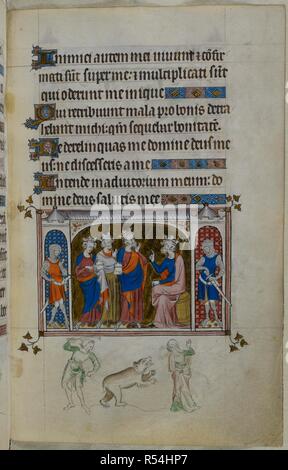 Inimici autem mei vivunt & cōfir
mati sūt super me: & multiplicati sūt
qui oderunt me inique
Qui retribuunt mala pro bonis detra
hebant michi: qm̄ sequebar bonitatem.
Ne derelinquas me domine deus me
us: ne discesseris a me
Intende in adiutorium meum: do
mine deus salutis mee
alamy
Image ID: R54HP7
www.alamy.com